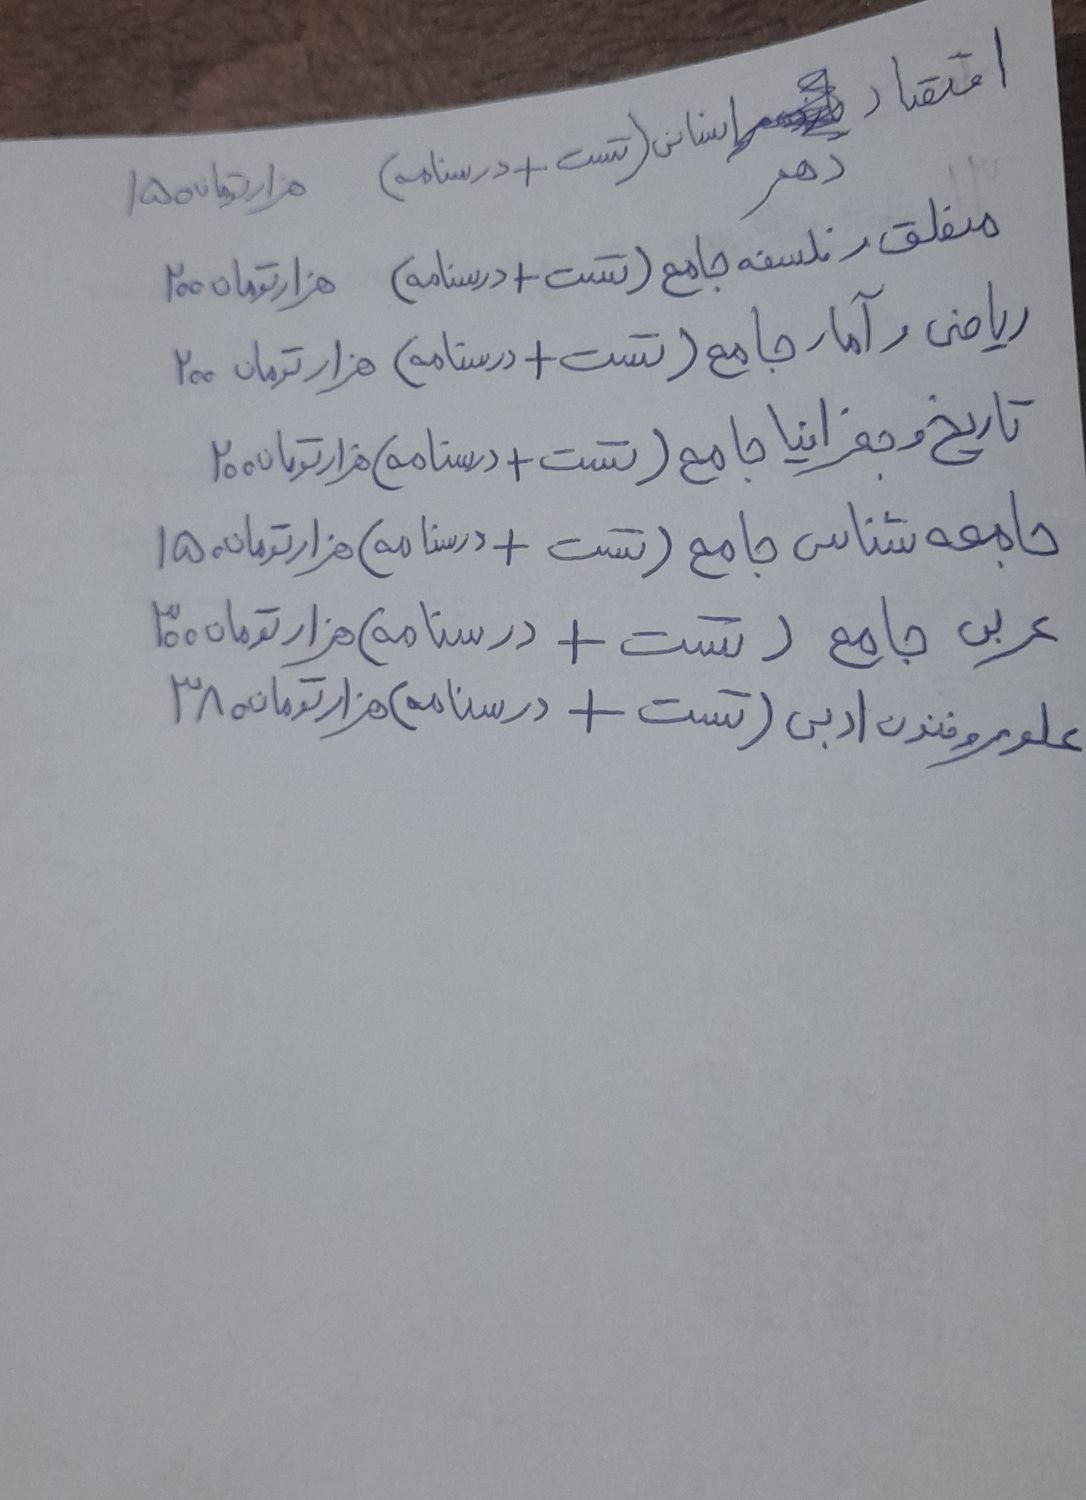 اقتصاد دهم انسانی (تست + درسنامه) ۱۵۰ هزار تومان
منطق و فلسفه جامع (تست + درسنامه) ۲۰۰ هزار تومان
ریاضی و آمار جامع (تست + درسنامه) ۲۰۰ هزار تومان
تاریخ و جغرافیا جامع (تست + درسنامه) ۲۰۰ هزار تومان
جامعه شناسی جامع (تست + درسنامه) ۱۵۰ هزار تومان
عربی جامع (تست + درسنامه) ۳۰۰ هزار تومان
علوم و فنون ادبی (تست + درسنامه) ۳۸۰ هزار تومان